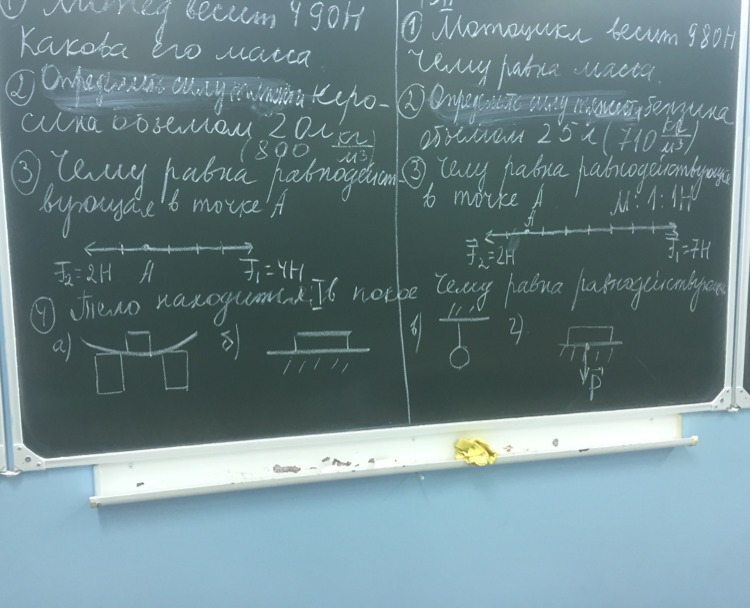 ① Мопед весит 490Н
Какова его масса
② Определить силу тяжести керо-
сина объемом 20л
(800 кг/м3)
③ Чему равна равнодейст-
вующая в точке А
F₂=2Н А F₁=4Н
④ Тело находится в покое Чему равна равнодействующая
а) б) в) г)
P
II
① Мотоцикл весит 980Н
Чему равна масса.
② Определить силу тяжести бензина
объемом 25л (710 кг/м3)
③ Чему равна равнодействующая
в точке А М: 1:1Н
А
F₂=2Н F₁=7Н